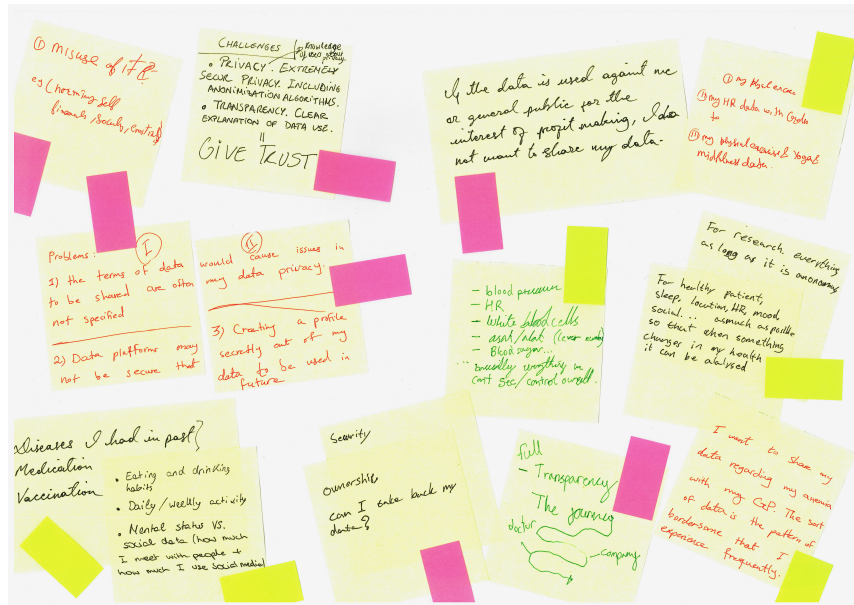 ① misuse of it
eg (harming self
financially, socially, emotionally)
CHALLENGES
Knowledge
• PRIVACY. EXTREMELY
SECUR PRIVACY. INCLUDING
ANONIMISATION ALGORITHMS.
• TRANSPARENCY. CLEAR
EXPLANATION OF DATA USE.
=
GIVE TRUST
If the data is used against me
or general public for the
interest of profit making, I do
not want to share my data.
① my
② my HR data with
to
③ my physical exercise & Yoga &
midfulness data.
Problems: I
1) the terms of data
to be shared are often
not specified
2) Data platforms may
not be secure that
II
would cause issues in
my data privacy.
3) Creating a profile
secretly out of my
data to be used in
future
- blood pressure
- HR
- White blood cells
- asat/alat
- Blood sugar...
... basically everything we
cant see/control ourself.
For research, everything
as long as it is anonymous
For healthy patient,
sleep, location, HR, mood
social... as much as possible
so that when something
changes in my health
it can be analysed
Diseases I had in past?
Medication
Vaccination
• Eating and drinking
habits
• Daily/weekly activity
• Mental status VS.
social data (how much
I meet with people +
how much I use social media)
Security
ownership
can I take back my
data?
Full
- Transparency
The journey
doctor
company
I want to share my
data regarding my anemia
with my GP. The sort
of data is the pattern of
bordersome that I
experience frequently.